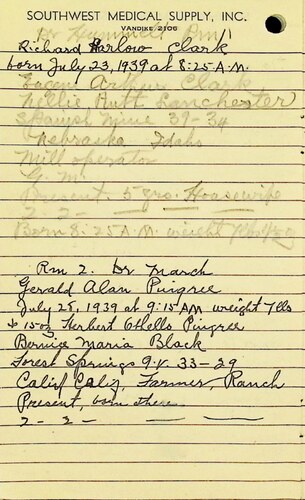 SOUTHWEST MEDICAL SUPPLY, INC.
VANDIKE 2106
Dr Hummel Rm 1
Richard Harlow Clark
born July 23, 1939 at 8:25 A.M.
Arthur Clark
Nellie Ruth Lanchester
Spanish 39 - 34
Nebraska Idaho
Mill operator
G. M.
Present 5 yrs. Housewife
2 - 2 -
Born 8:25 A.M. weight 7 lbs
Rm 2. Dr March
Gerald Alan Pingree
July 25, 1939 at 9:15 AM weight 7 lbs
+ 15 oz Herbert Othello Pingree
Bernice Maria Black
Forest Springs 33 - 29
Calif Calif, Farmer, Ranch
Present, born there
2 - 2 -